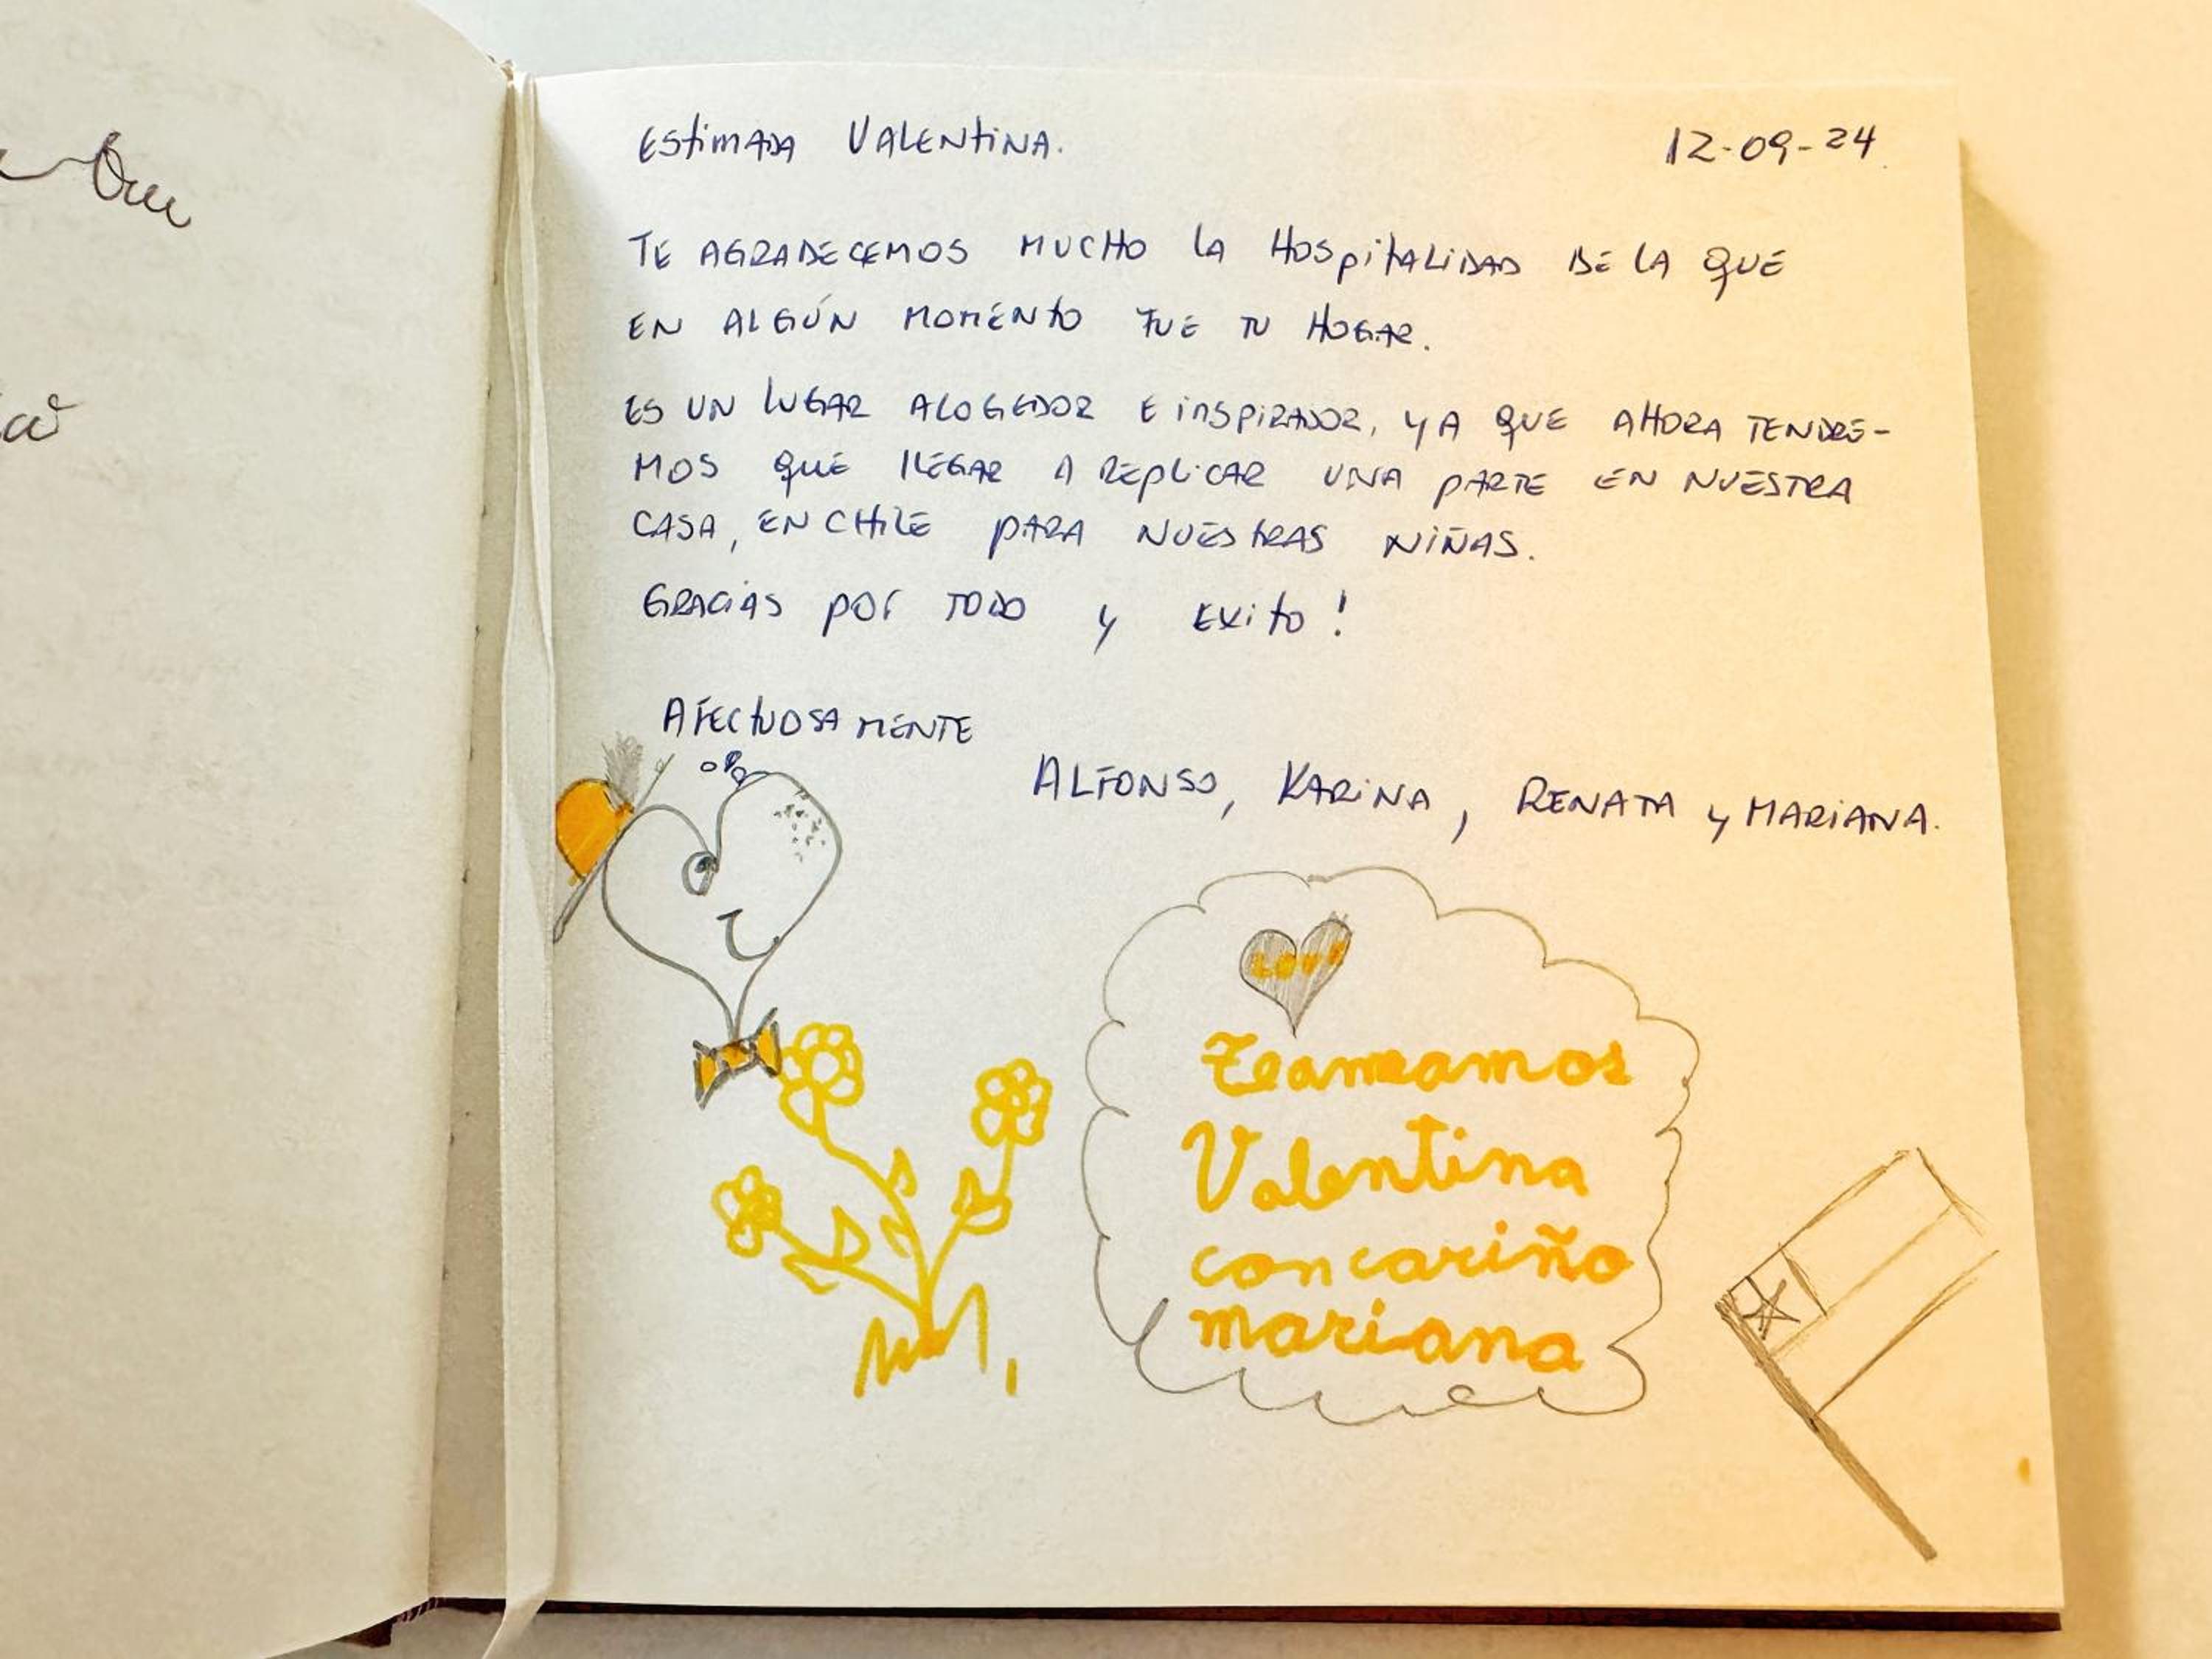 Estimada Valentina.
12-09-24
Te agradecemos mucho la hospitalidad de la que
en algún momento fue tu hogar.
Es un lugar acogedor e inspirador, ya que ahora tendre-
mos que llegar a replicar una parte en nuestra
casa, en Chile para nuestras niñas.
Gracias por todo y exito!
Afectuosamente
Alfonso, Karina, Renata y Mariana.
Love
Teameamos
Valentina
con cariño
mariana